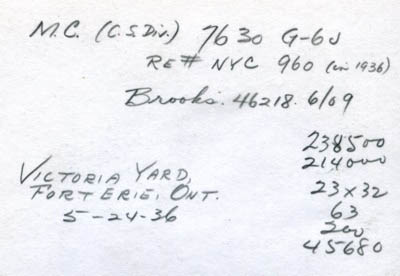 M.C. (C.S Div.) 7630 G-6U
RE# NYC 960 (in 1936)
Brooks. 46218. 6/09
238500
214000
VICTORIA YARD,
23 x 32
FORT ERIE, ONT.
63
5-24-36
200
45680